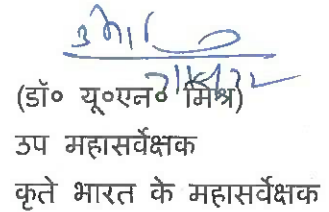 (डॉ० यू०एन० मिश्र)
उप महासर्वेक्षक
कृते भारत के महासर्वेक्षक